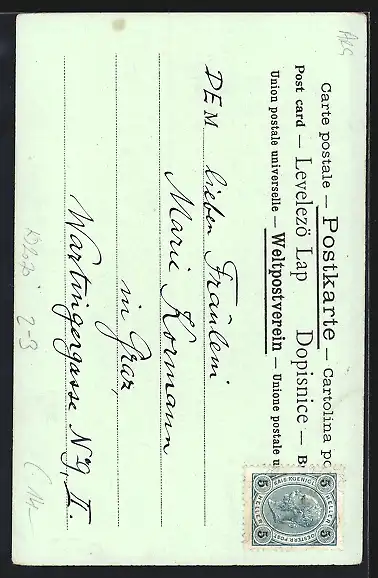 Carte postale — Postkarte — Cartolina po
Post card — Levelező Lap Dopisnice — B
Union postale universelle — Weltpostverein — Unione postale u
DEM lieben Fräulein
Marie Kormann
in Graz
Wartingergasse No 9, II.
5 HELLER 5
KAIS. KOENIGL.
OESTERR. POST
5 HELLER 5
2-3